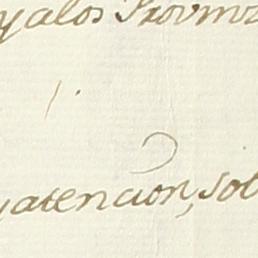 y alos Provinz
y atencion, sob